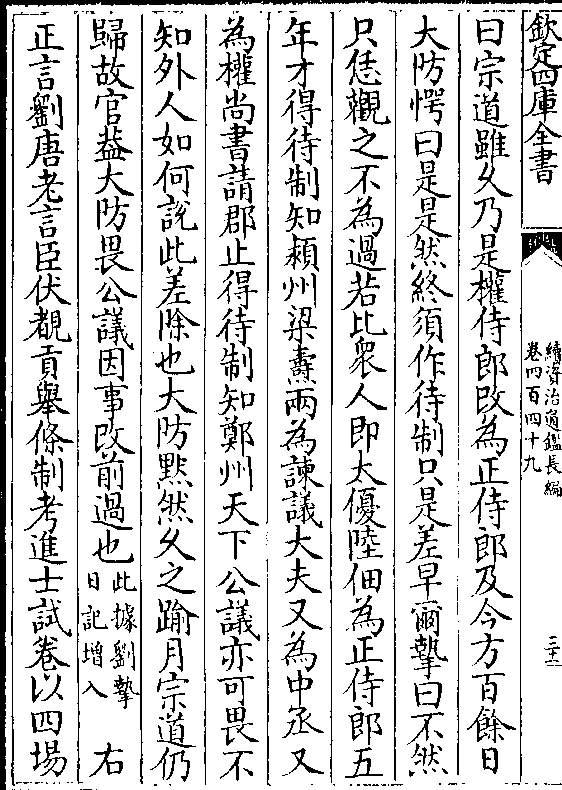 欽定四庫全書
續資治通鑑長編
卷四百四十九
三十二
曰宗道雖乆乃是權侍郎改為正侍郎及今方百餘日
大防愕曰是是然終須作待制只是差早爾摯曰不然
只恁觀之不為過若比衆人即太優陸佃為正侍郎五
年才得待制知潁州梁燾兩為諫議大夫又為中丞又
為權尚書請郡止得待制知鄭州天下公議亦可畏不
知外人如何說此差除也大防黙然乆之踰月宗道仍
歸故官葢大防畏公議因事改前過也此據劉摯日記增入 右
正言劉唐老言臣伏覩貢舉條制考進士試卷以四場